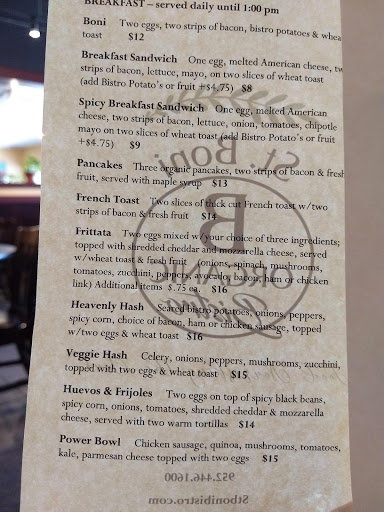 BREAKFAST – served daily until 1:00 pm
Boni Two eggs, two strips of bacon, bistro potatoes & whea
toast $12
Breakfast Sandwich One egg, melted American cheese, tw
strips of bacon, lettuce, mayo, on two slices of wheat toast
(add Bistro Potato's or fruit +$4.75) $8
Spicy Breakfast Sandwich One egg, melted American
cheese, two strips of bacon, lettuce, onion, tomatoes, chipotle
mayo on two slices of wheat toast (add Bistro Potato's or fruit
+$4.75) $9
Pancakes Three organic pancakes, two strips of bacon & fresh
fruit, served with maple syrup $13
French Toast Two slices of thick cut French toast w/two
strips of bacon & fresh fruit $14
Frittata Two eggs mixed w/your choice of three ingredients;
topped with shredded cheddar and mozzarella cheese, served
w/wheat toast & fresh fruit (onions, spinach, mushrooms,
tomatoes, zucchini, peppers, avocado, bacon, ham or chicken
link) Additional items $.75 ea. $16
Heavenly Hash Seared bistro potatoes, onions, peppers,
spicy corn, choice of bacon, ham or chicken sausage, topped
w/two eggs & wheat toast $16
Veggie Hash Celery, onions, peppers, mushrooms, zucchini,
topped with two eggs & wheat toast $15
Huevos & Frijoles Two eggs on top of spicy black beans,
spicy corn, onions, tomatoes, shredded cheddar & mozzarella
cheese, served with two warm tortillas $14
Power Bowl Chicken sausage, quinoa, mushrooms, tomatoes,
kale, parmesan cheese topped with two eggs $15
St. Boni
B
952.446.1600
Stbonibistro.com